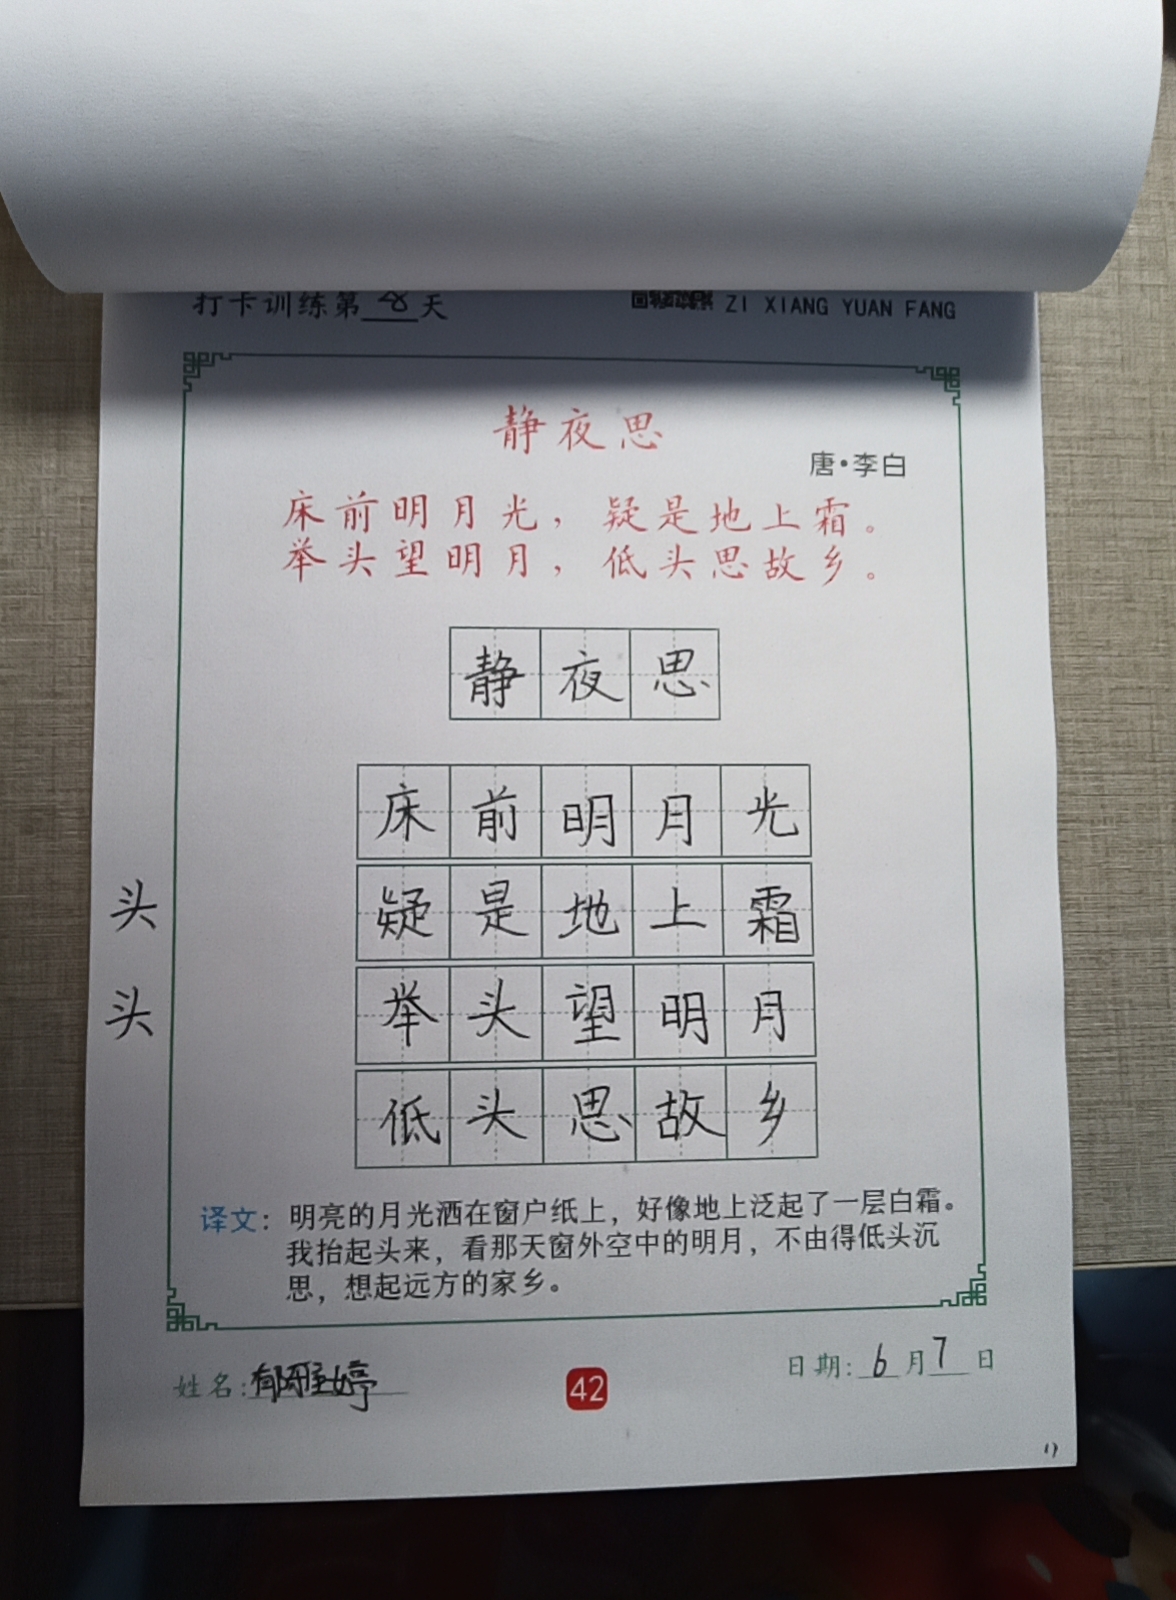 打卡训练第 天 ZI XIANG YUAN FANG
静夜思
唐·李白
床前明月光，疑是地上霜。
举头望明月，低头思故乡。
静夜思
床前明月光
疑是地上霜
举头望明月
低头思故乡
头
头
译文：明亮的月光洒在窗户纸上，好像地上泛起了一层白霜。
我抬起头来，看那天窗外空中的明月，不由得低头沉
思，想起远方的家乡。
姓名：郁雅婷
42
日期：6月7日